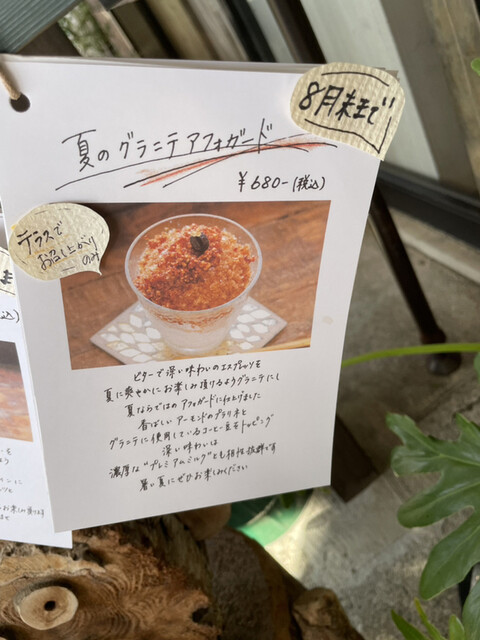 8月末まで
夏のグラニテアフォガード
¥680-(税込)
テラスで
お召し上がり
のみ
ビターで深い味わいのエスプレッソを
夏に爽やかにお楽しみ頂けるようグラニテにし
夏ならではのアフォガードに仕上げました
香ばしいアーモンドのプラリネと
グラニテに使用しているコーヒー豆をトッピング
深い味わいは
濃厚な"プレミアムミルク"とも相性抜群です
暑い夏にぜひお楽しみください
込)